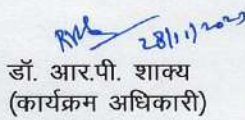 28/11/2023
डॉ. आर.पी. शाक्य
(कार्यक्रम अधिकारी)